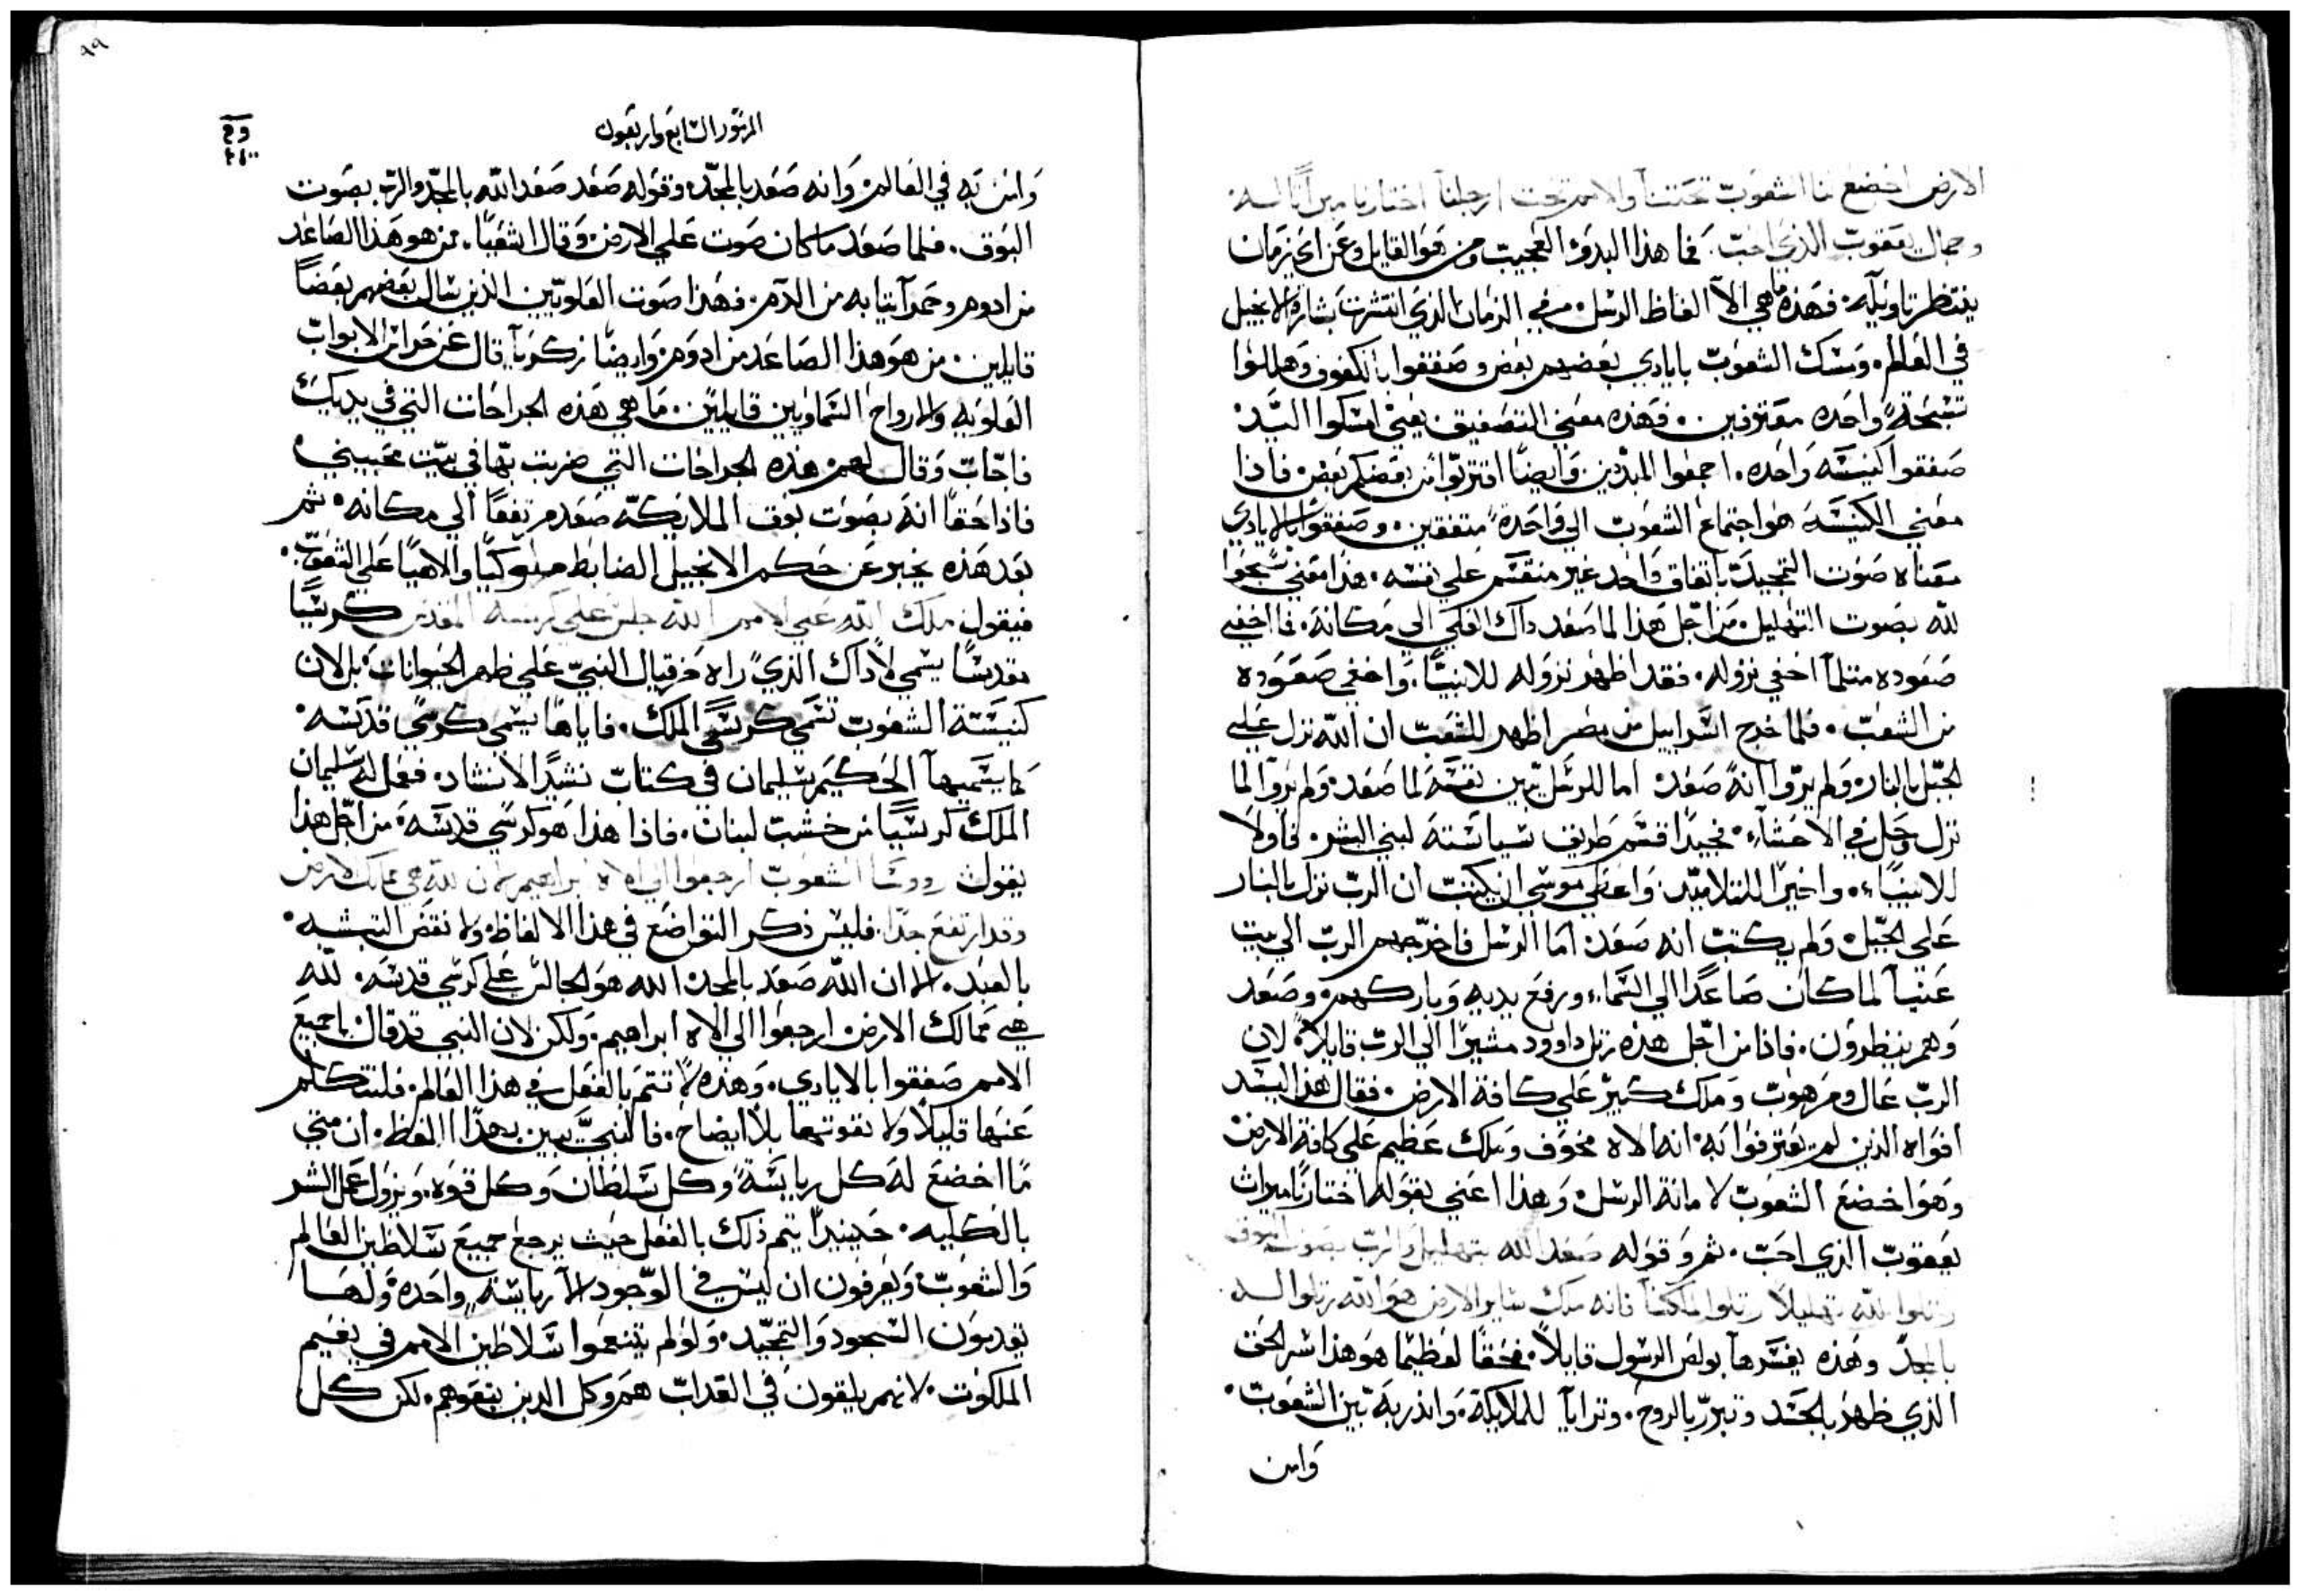 الارض اخضع لنا الشعوب تحتنا والامم تحت ارجلنا اختارنا ميراثا له
وجمال يعقوب الذي احب. فما هذا البدو العجيب ومن هو القايل وعن اي زمان
ينتظر تاويله. فهذه ما هي الا الفاظ الرسل من في الزمان الذي انتشرت بشارة الانجيل
في العالم. ومسك الشعوب بايادي بعضهم بعض وصفقوا بالكفوف وهللوا
تسبحة واحده معترفين. فهذه معني التصفيق يعني امسكوا اليد
صفقوا كنيسه واحده. اجمعوا المبددين وايضا اقتربوا من بعضكم بعض فاذا
معني الكنيسه هو اجتماع الشعوب الي واحدة متفقين. وصفقوا بالايادي
معناه صوت التمجيد باتفاق واحد غير منقسم علي نفسه. هذا معني سبحوا
لله بصوت التهليل. من اجل هذا لما صعد داك العلي الي مكانه. فما اخفي
صعوده مثلما اخفي نزوله. فقد اظهر نزوله للانبيا. واخفي صعوده
من الشعب. فلما خرج اسراييل من مصر اظهر للشعب ان الله نزل علي
الجبل بالنار ولم يروا انه صعد اما للرسل بين نفسه لما صعد ولم يروا لما
نزل وحل في الاحشاء. فجيدا قسم طريق سياسته لبني البشر. فاولا
للانبياء. واخيرا للتلاميد. واعطي موسي ان يكتب ان الرب نزل بالنار
علي الجبل ولم يكتب انه صعد. اما الرسل فاخرجهم الرب الي بيت
عنيا لما كان صاعدا الي السماء ورفع يديه وباركهم وصعد
وهم ينظرون. فاذا من اجل هذه رتل داوود مشيرا الي الرب قايلا لان
الرب عال ومرهوب وملك كبير علي كافة الارض. فقال هذا ليسد
افواه الذين لم يعترفوا به انه الاه مخوف وملك عظيم علي كافة الارض
وهو اخضع الشعوب لامانة الرسل وهذا اعني بقوله اختارنا ميراث
يعقوب الذي احب. ثم وقوله صعد الله بتهليل والرب بصوت البوق
رتلوا لله تهليلا رتلوا لملكنا فانه ملك ساير الارض هو الله رتلوا له
بالمجد وهذه يفسرها بولص الرسول قايلا. فحقا لعظيما هو هذا سر الحق
الذي ظهر بالجسد وتبرر بالروح. وترايا للملايكة. وانذر به بين الشعوب.
وامن
٩٩
المزمور السابع واربعون
وامن به في العالم وانه صعد بالمجد. وقوله صعد صعد الله بالمجد والرب بصوت
البوق. فلما صعد ما كان صوت علي الارض وقال اشعيا. من هو هذا الصاعد
من ادوم وحمرة ثيابه من الدم. فهذا صوت العلويين الذين سال بعضهم بعضا
قايلين. من هو هذا الصاعد من ادوم وايضا زكريا قال عن حراس الابواب
العلويه والارواح السماويين قايلين. ما هي هذه الجراحات التي في يديك
فاجاب وقال لهم هذه الجراحات التي ضربت بها في بيت محبيني
فاذا حقا انه بصوت بوق الملايكة صعد مرتفعا الي مكانه. ثم
بعد هذه يخبر عن حكم الانجيل الضابط ملوكيا والاهيا علي الشعوب.
فيقول ملك الله علي الامم الله جلس علي كرسيه المقدس كرسيا
مقدسا يسمي لا داك الذي راه حزقيال النبي علي ظهر الحيوانات بل الان
كنيسة الشعوب تسمي كرسي الملك. فاياها يسمي كرسي قدسه.
كما يسميها الحكيم سليمان في كتاب نشيد الانشاد. فعمل له سليمان
الملك كرسيا من خشب لبنان. فاذا هذا هو كرسي قدسه. من اجل هذا
يقول روسا الشعوب ارجعوا الي الاه ابراهيم لان لله هي ممالك الارض
وقد ارتفع جدا. فليس ذكر التواضع في هذا الالفاظ ولا نقص التشبه
بالعبد. الا ان الله صعد بالمجد الله هو الجالس علي كرسي قدسه. لله
هي ممالك الارض ارجعوا الي الاه ابراهيم. ولكن لان النبي قد قال يا جميع
الامم صفقوا بالايادي. وهذه لا تتم بالفعل في هذا العالم. فلنتكلم
عنها قليلا ولا نفوتها بلا ايضاح. فالنبي يبين بهذا اللفظ. ان متي
ما اخضع له كل رياسة وكل سلطان وكل قوه. ويزول عمل البشر
بالكليه. حينيذا يتم ذلك بالفعل حيث يرجع جميع سلاطين العالم
والشعوب ويعرفون ان ليس في الوجود الا رياسة واحدة ولها
يقدمون السجود والتمجيد. ولو لم يتنعموا سلاطين الامم في نعيم
الملكوت. لانهم يلقون في العداب هم وكل الدين يتبعوهم. لكن كل